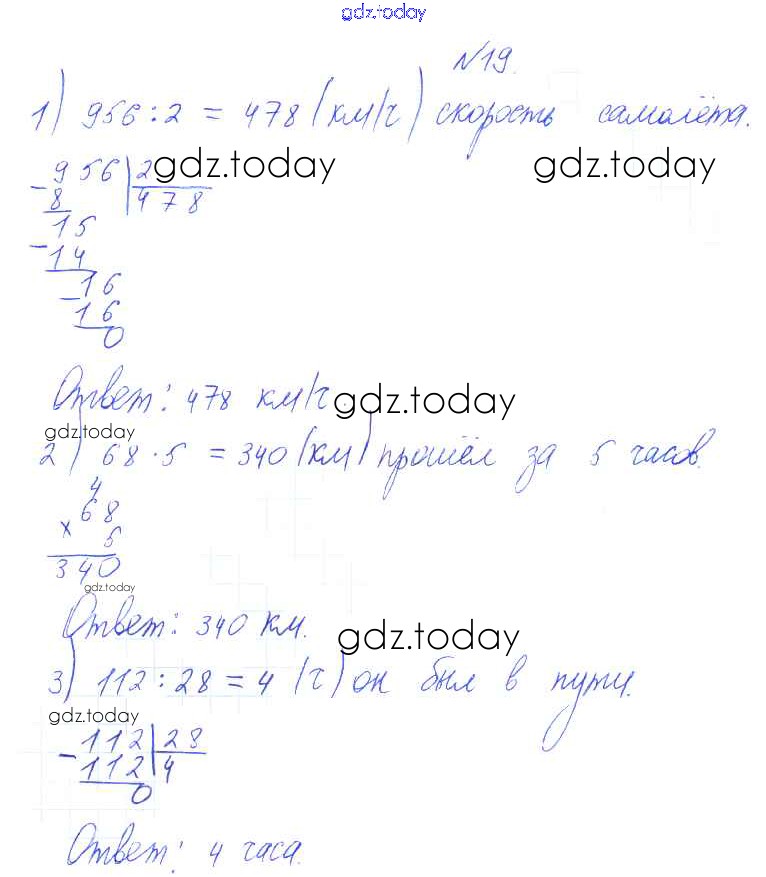 gdz.today
№19.
1) 956 : 2 = 478 (км/ч) скорость самолёта.
956 2 gdz.today gdz.today
- 8 478
15
- 14
16
- 16
0
Ответ: 478 км/ч. gdz.today
gdz.today
2) 68 · 5 = 340 (км) прошёл за 5 часов.
4
68
× 5
340
gdz.today
Ответ: 340 км. gdz.today
3) 112 : 28 = 4 (ч) он был в пути.
gdz.today
- 112 28
112 4
0
Ответ: 4 часа.